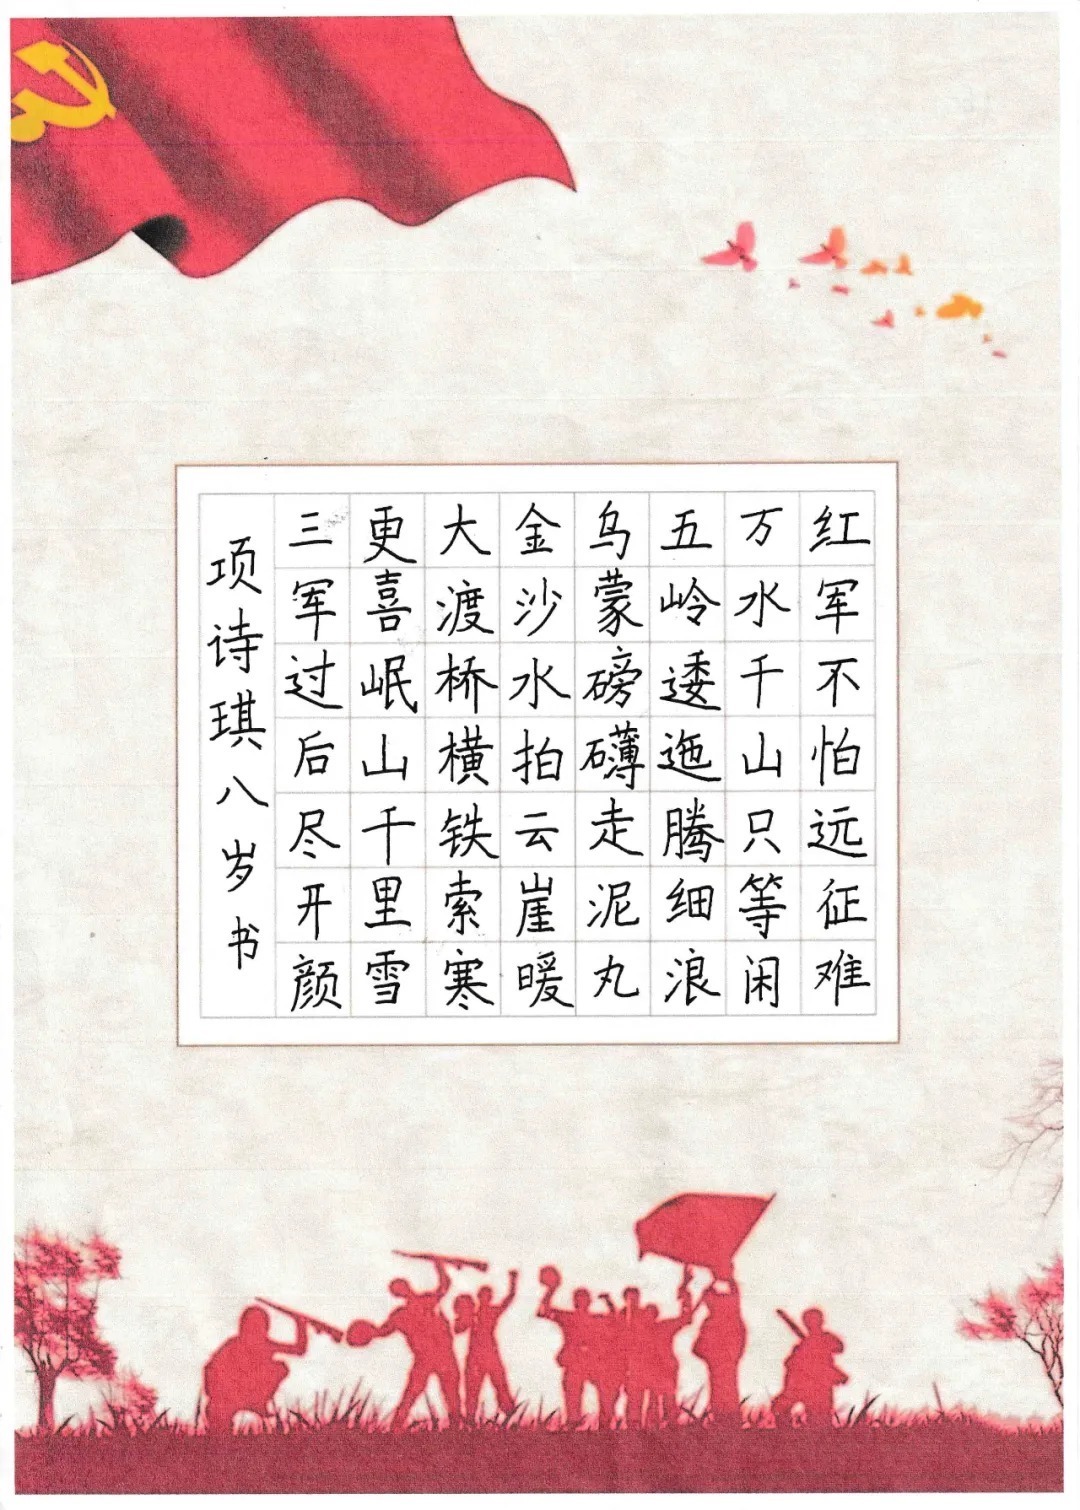 红军不怕远征难
万水千山只等闲
五岭逶迤腾细浪
乌蒙磅礴走泥丸
金沙水拍云崖暖
大渡桥横铁索寒
更喜岷山千里雪
三军过后尽开颜
项诗琪八岁书